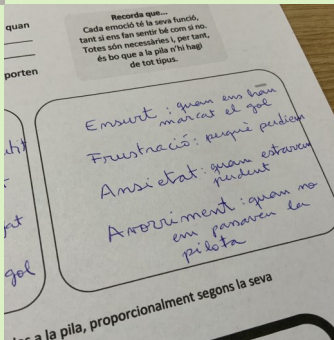 quan
porten
Recorda que...
Cada emoció té la seva funció,
tant si ens fan sentir bé com si no.
Totes són necessàries i, per tant,
és bo que a la pila n'hi hagi
de tot tipus.
Ensurt : quan ens han
marcat el gol
Frustració : perquè perdíem
Ansietat : quan estavem
perdent
Avorriment : quan no
em passaven la
pilota
gol
a la pila, proporcionalment segons la seva